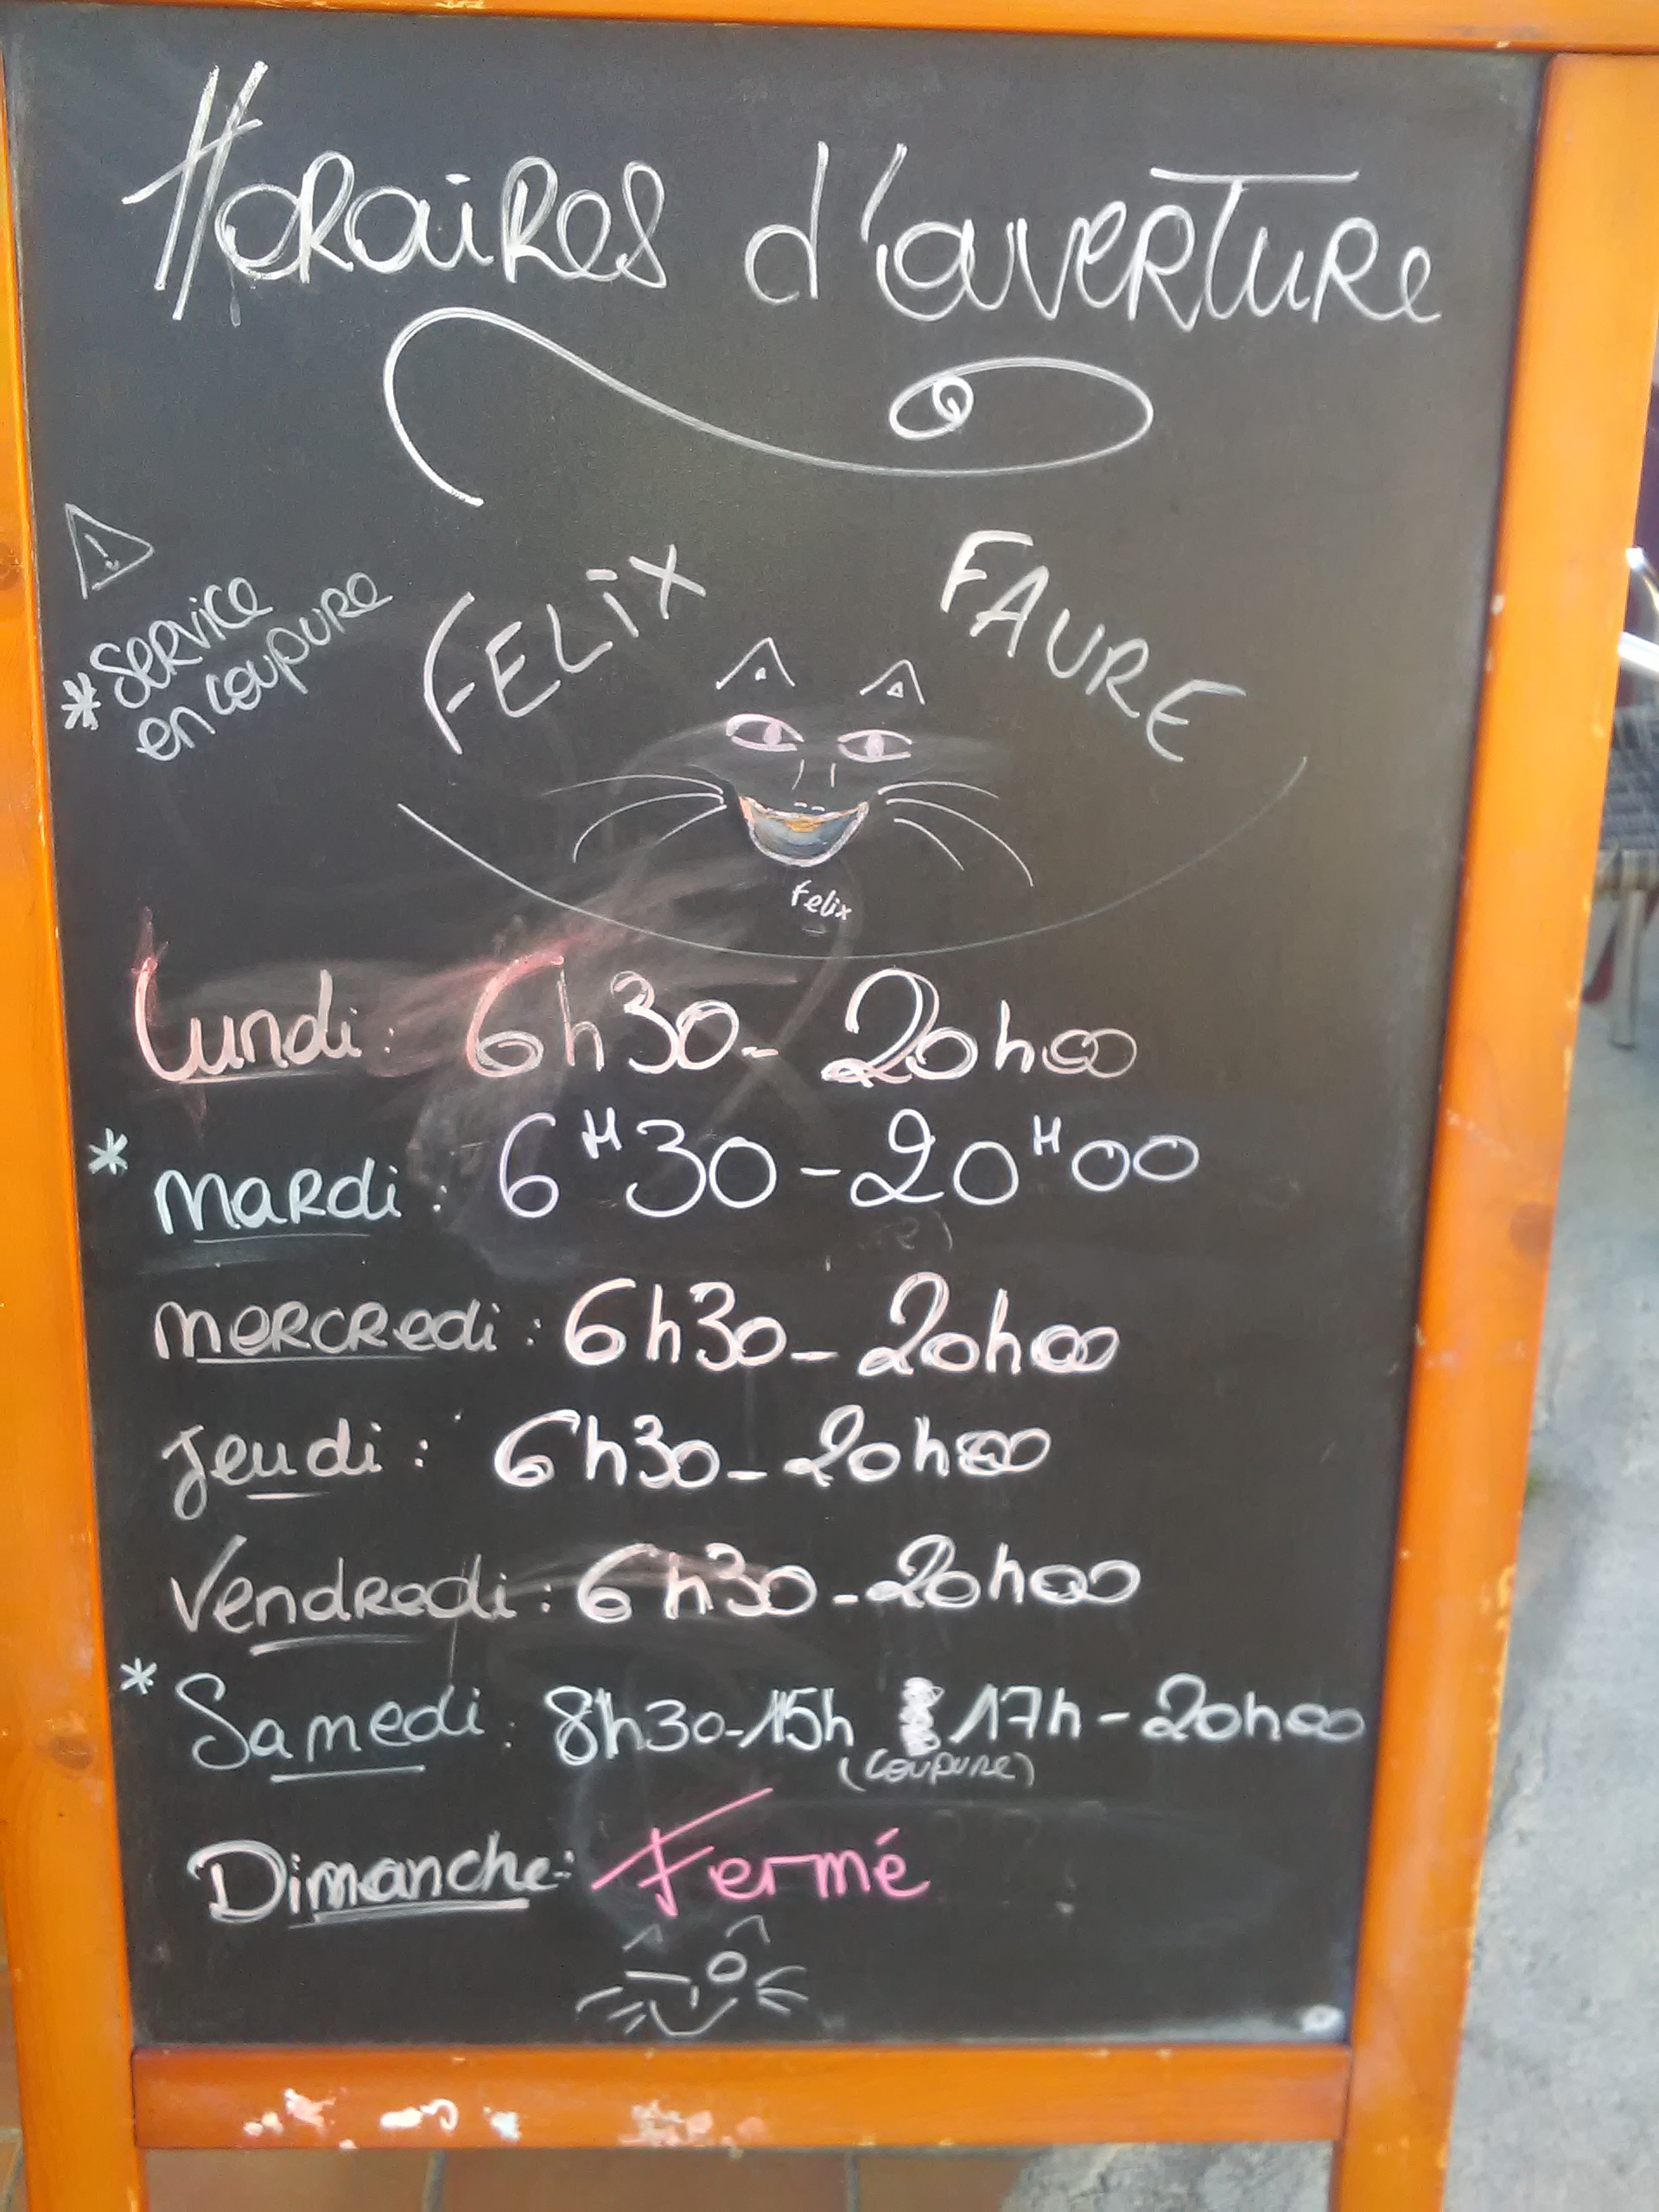 Horaires d'ouverture
⚠
* Service
en coupure
FELIX FAURE
Felix
Lundi : 6h30 - 20h00
* Mardi : 6H30 - 20H00
Mercredi : 6h30 - 20h00
Jeudi : 6h30 - 20h00
Vendredi : 6h30 - 20h00
* Samedi : 8h30-15h 17h - 20h00
(coupure)
Dimanche : Fermé